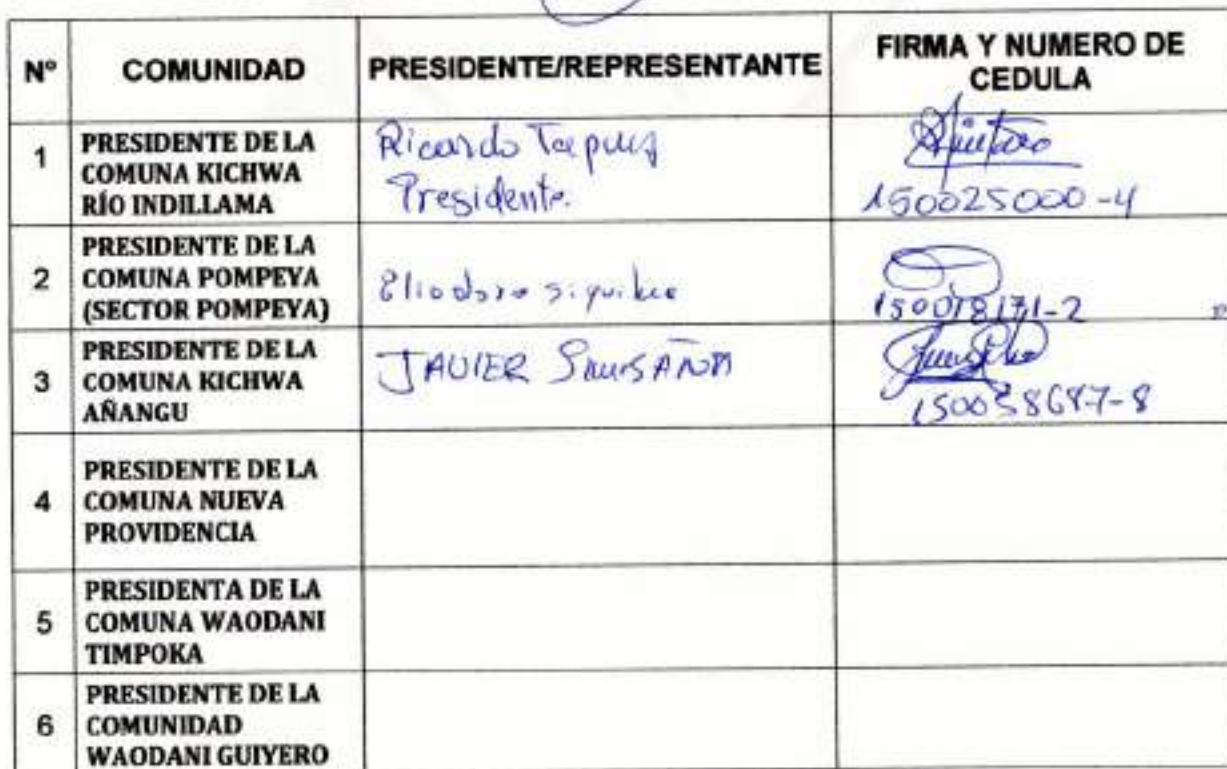 Nº COMUNIDAD PRESIDENTE/REPRESENTANTE FIRMA Y NUMERO DE
CEDULA
1
PRESIDENTE DE LA
COMUNA KICHWA
RÍO INDILLAMA
Ricardo
Presidente.
150025000-4
2
PRESIDENTE DE LA
COMUNA POMPEYA
(SECTOR POMPEYA)
3
PRESIDENTE DE LA
COMUNA KICHWA
AÑANGU
JAVIER
4
PRESIDENTE DE LA
COMUNA NUEVA
PROVIDENCIA
5
PRESIDENTA DE LA
COMUNA WAODANI
TIMPOKA
6
PRESIDENTE DE LA
COMUNIDAD
WAODANI GUIYERO